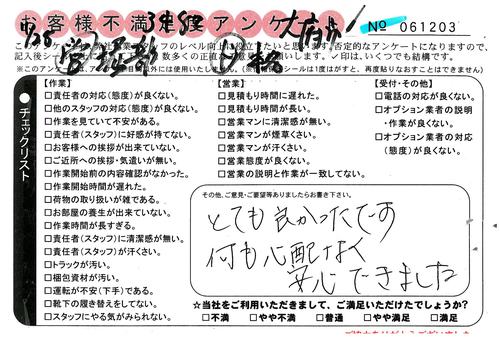 お客様不満足度アンケ
№ 061203
記入後シール
※このアンケー
※シールは1度はがすと、再度貼りなおすことはできません
チェックリスト
【作業】
□責任者の対応(態度)が良くない。
□他のスタッフの対応(態度)が良くない。
□作業を見ていて不安がある。
□責任者(スタッフ)に好感が持てない。
□お客様への挨拶が出来ていない。
□ご近所への挨拶・気遣いが無い。
□作業開始前の内容確認がなかった。
□作業開始時間が遅れた。
□荷物の取り扱いが雑である。
□お部屋の養生が出来ていない。
□作業時間が長すぎる。
□責任者(スタッフ)に清潔感が無い。
□責任者(スタッフ)が汗くさい。
□トラックが汚い。
□梱包資材が汚い。
□運転が不安(下手)である。
□靴下の履き替えをしてない。
□スタッフにやる気がみられない。
【営業】
□見積もり時間に遅れた。
□見積もり時間が長い。
□営業マンに清潔感が無い。
□営業マンが煙草くさい。
□営業マンが汗くさい。
□営業態度が良くない。
□営業の説明と作業が一致してない。
【受付・その他】
□電話の対応が良くない。
□オプション業者の説明
・作業が良くない。
□オプション業者の対応
(態度)が良くない。
その他、ご意見・ご要望等ありましたらお書き下さい。
とても良かったです
何も心配なく
安心できました
☆当社をご利用いただきまして、ご満足いただけたでしょうか?
□不満 □やや不満 □普通 □やや満足 □満足